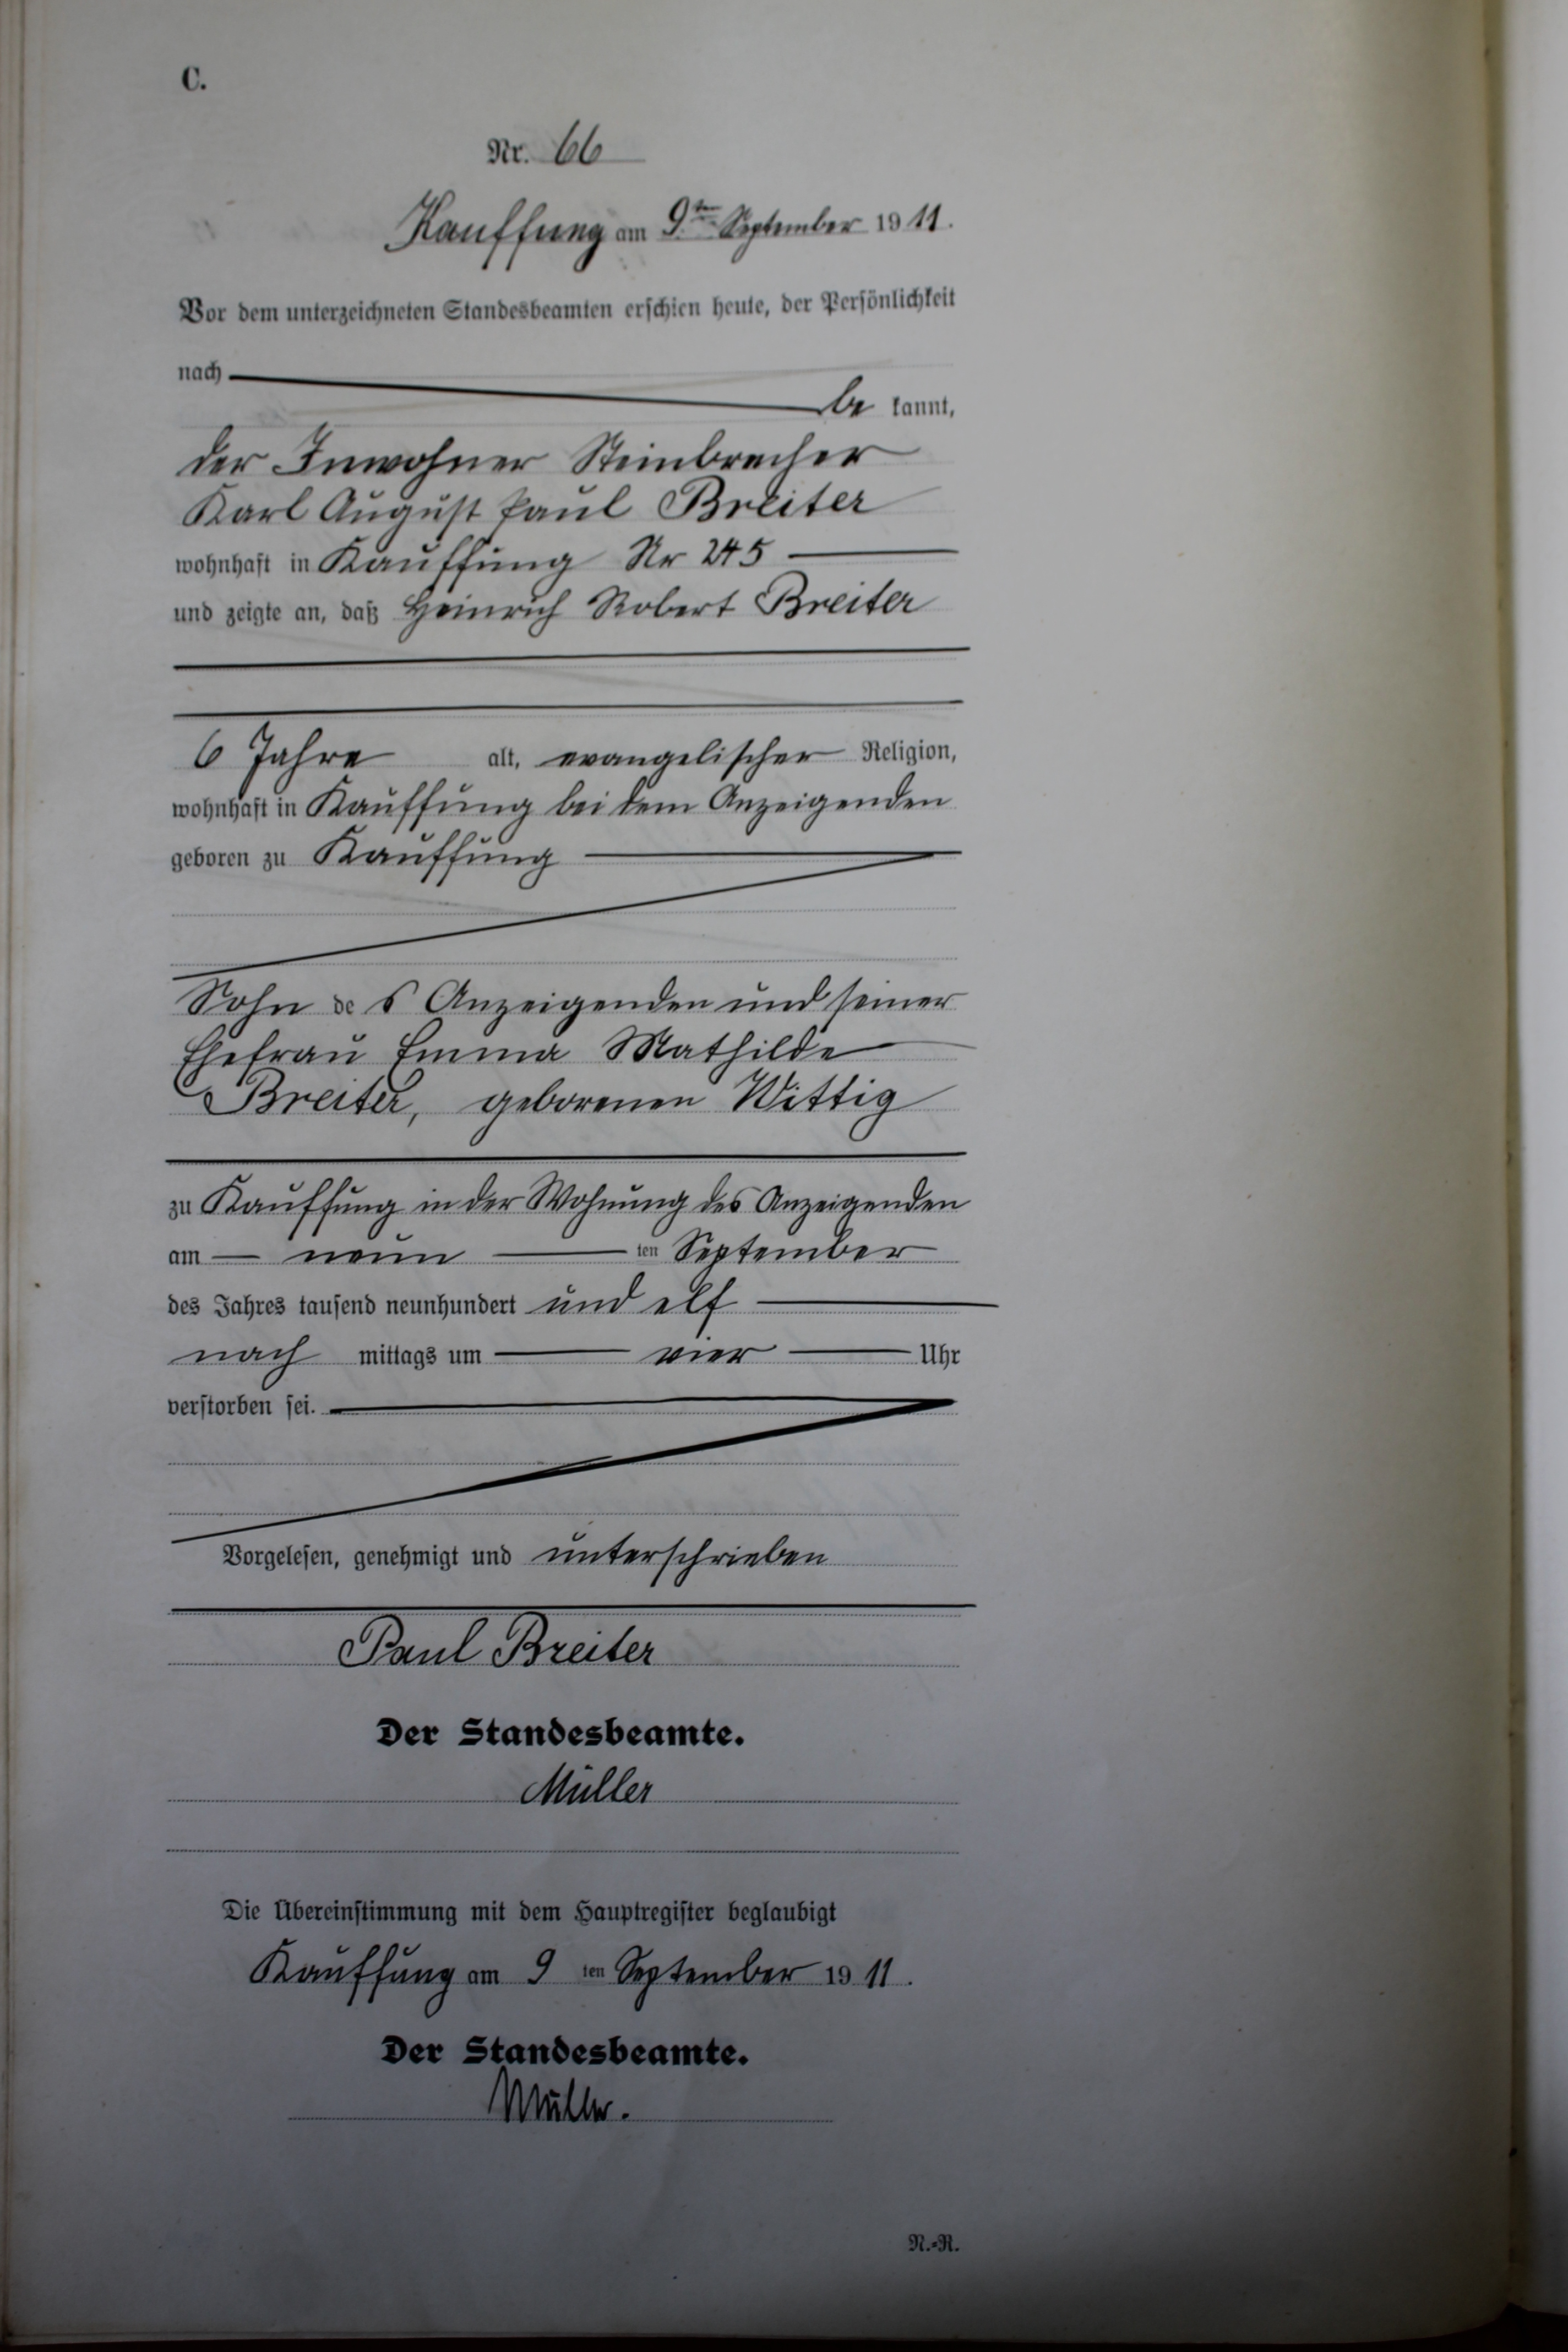 C.
Nr. 66
Kauffung am 9ten September 1911.
Vor dem unterzeichneten Standesbeamten erschien heute, der Persönlichkeit
nach
be kannt,
der Inwohner Steinbrecher
Karl August Paul Breiter
wohnhaft in Kauffung Nr 245
und zeigte an, daß Heinrich Robert Breiter
6 Jahre alt, evangelischer Religion,
wohnhaft in Kauffung bei dem Anzeigenden
geboren zu Kauffung
Sohn des Anzeigenden und seiner
Ehefrau Emma Mathilde
Breiter, geborenen Wittig
zu Kauffung in der Wohnung des Anzeigenden
am neun ten September
des Jahres tausend neunhundert und elf
nach mittags um vier Uhr
verstorben sei.
Vorgelesen, genehmigt und unterschrieben
Paul Breiter
Der Standesbeamte.
Müller
Die Übereinstimmung mit dem Hauptregister beglaubigt
Kauffung am 9 ten September 1911.
Der Standesbeamte.
Müller.
N.-R.